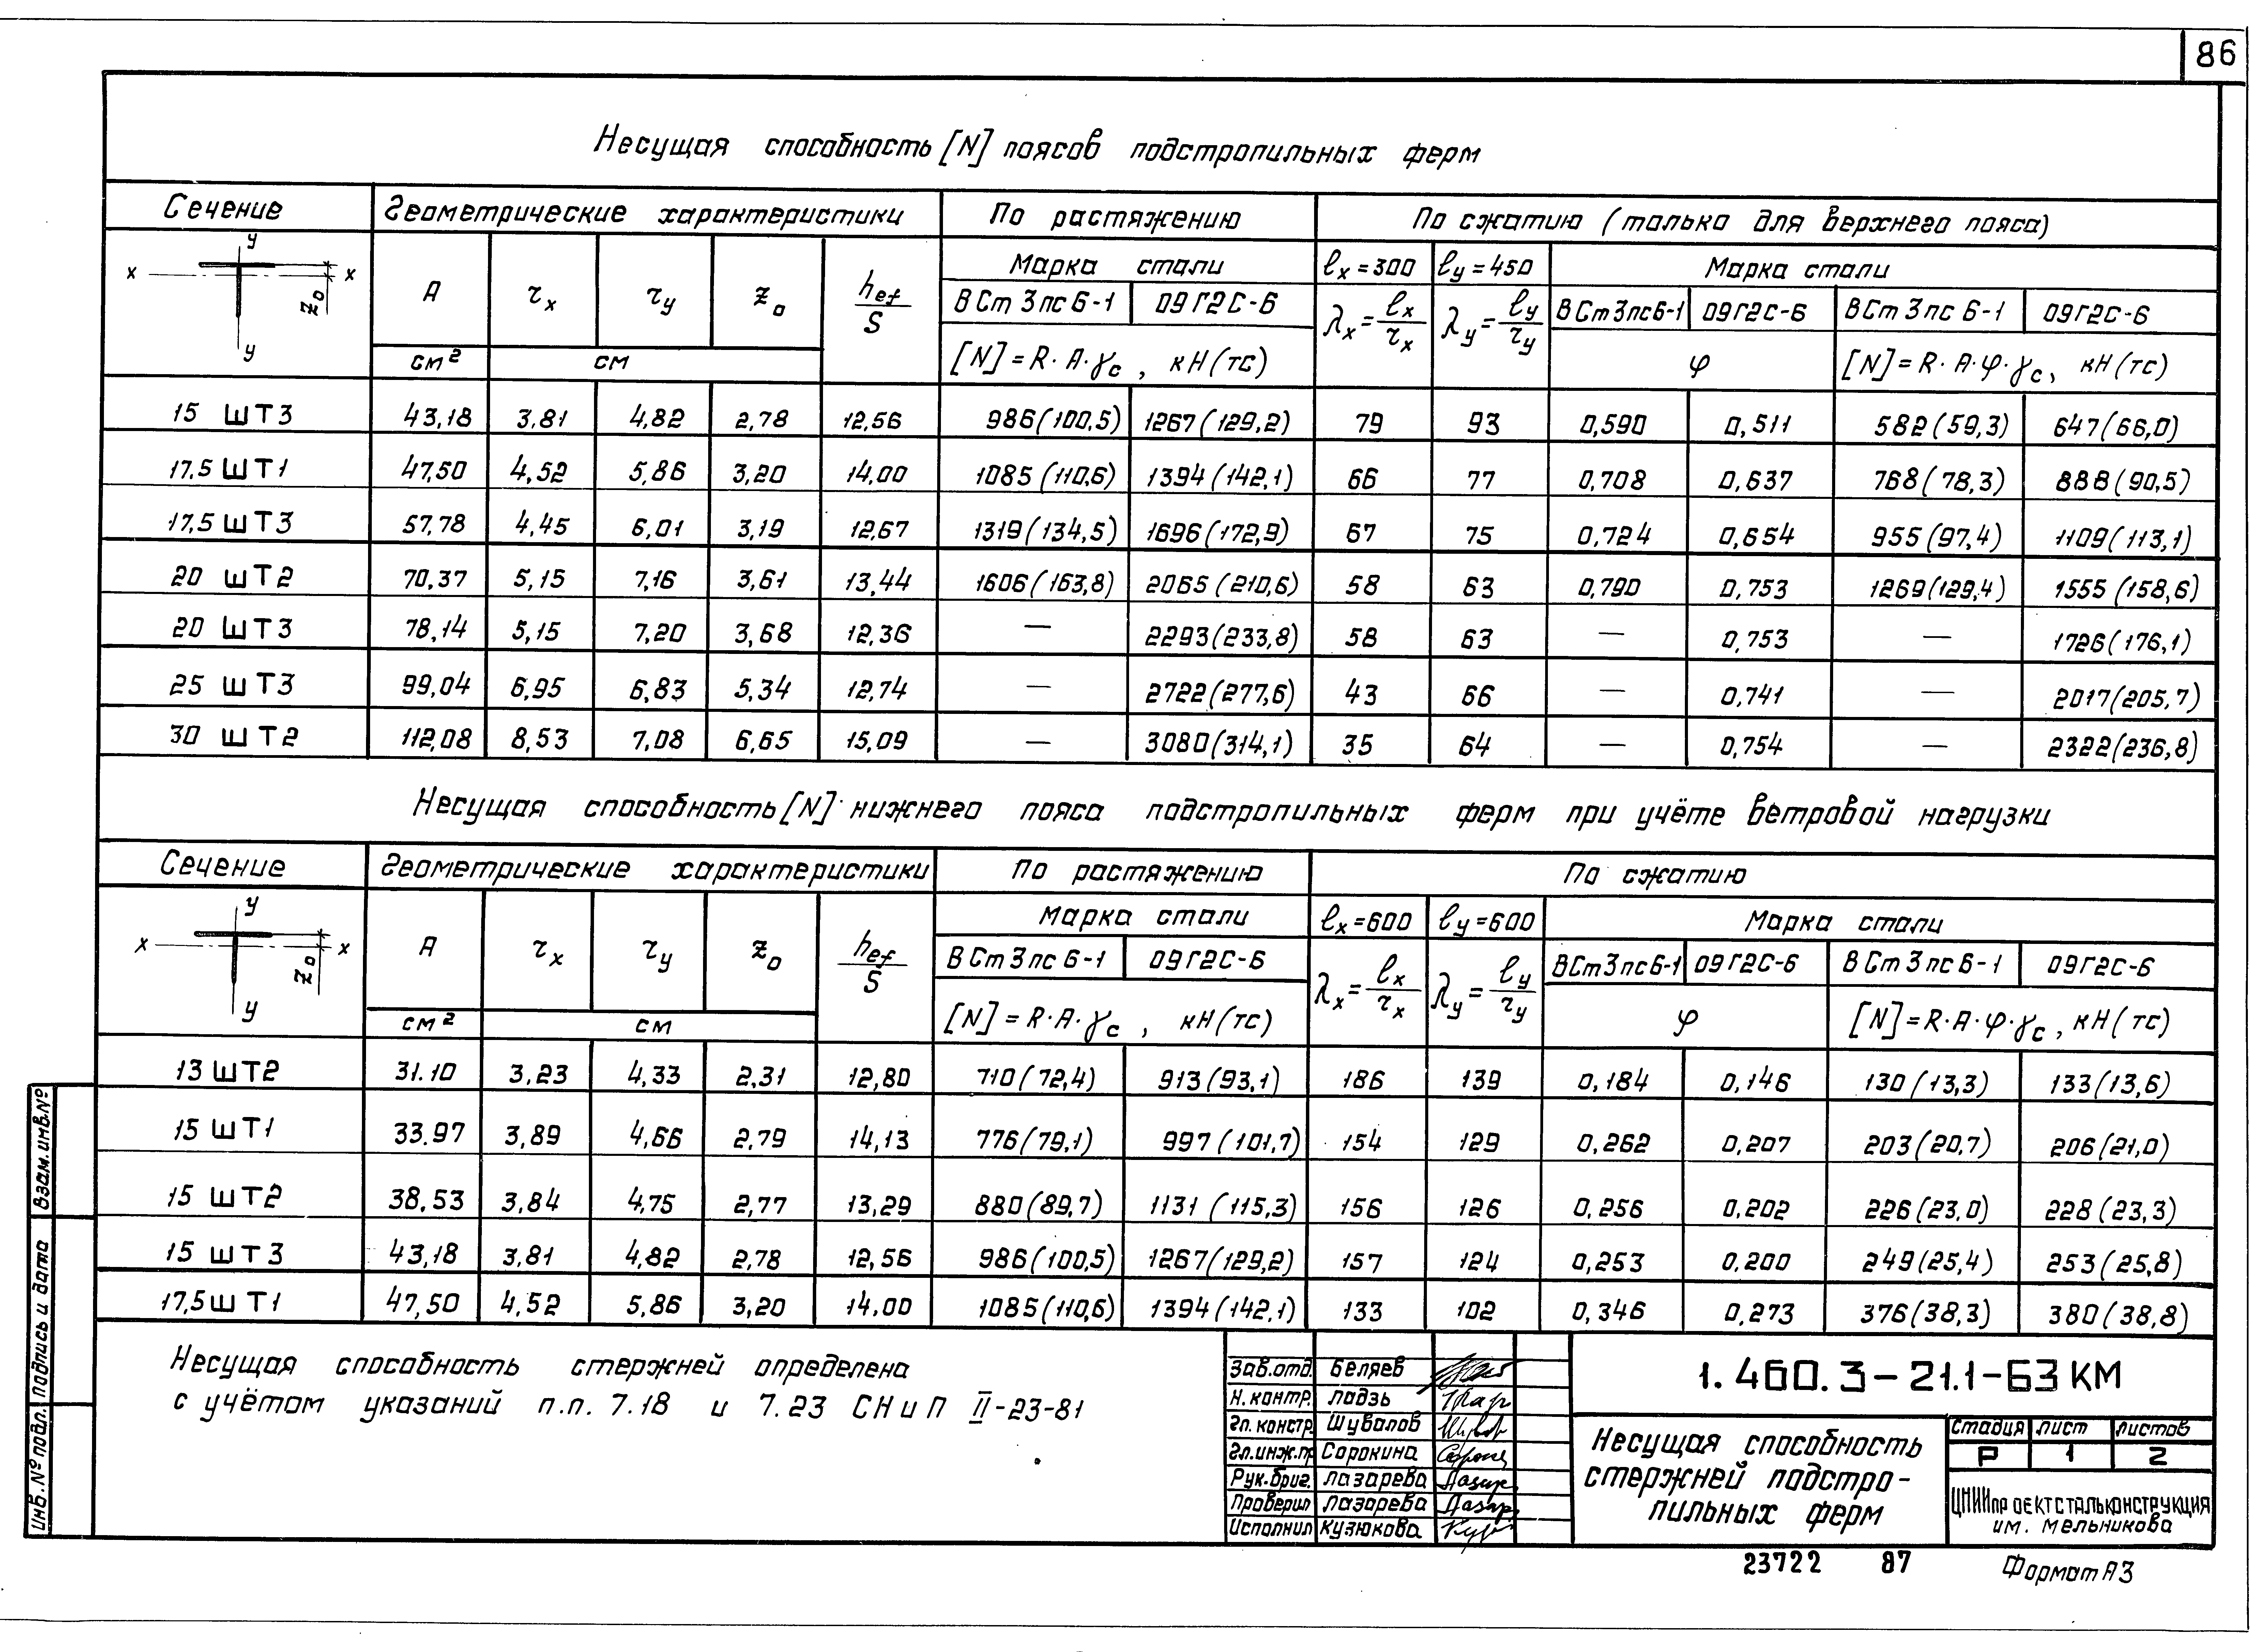 86
Несущая способность [N] поясов подстропильных ферм
Сечение Геометрические характеристики По растяжению По сжатию (только для верхнего пояса)
y x x z₀ y
A τx τy z₀ hef/S Марка стали ℓx=300 ℓy=450 Марка стали
ВСт3пс6-1 09Г2С-6 λx=ℓx/τx λy=ℓy/τy ВСт3пс6-1 09Г2С-6 ВСт3пс6-1 09Г2С-6
см² см [N]=R·A·γc, кН(тс) φ [N]=R·A·φ·γc, кН(тс)
15 ШТ3 43,18 3,81 4,82 2,78 12,56 986(100,5) 1267(129,2) 79 93 0,590 0,511 582(59,3) 647(66,0)
17,5 ШТ1 47,50 4,52 5,86 3,20 14,00 1085(110,6) 1394(142,1) 66 77 0,708 0,637 768(78,3) 888(90,5)
17,5 ШТ3 57,78 4,45 6,01 3,19 12,67 1319(134,5) 1696(172,9) 67 75 0,724 0,654 955(97,4) 1109(113,1)
20 ШТ2 70,37 5,15 7,16 3,61 13,44 1606(163,8) 2065(210,6) 58 63 0,790 0,753 1269(129,4) 1555(158,6)
20 ШТ3 78,14 5,15 7,20 3,68 12,36 — 2293(233,8) 58 63 — 0,753 — 1726(176,1)
25 ШТ3 99,04 6,95 6,83 5,34 12,74 — 2722(277,6) 43 66 — 0,741 — 2017(205,7)
30 ШТ2 112,08 8,53 7,08 6,65 15,09 — 3080(314,1) 35 64 — 0,754 — 2322(236,8)
Несущая способность [N] нижнего пояса подстропильных ферм при учёте ветровой нагрузки
Сечение Геометрические характеристики По растяжению По сжатию
y x x z₀ y
A τx τy z₀ hef/S Марка стали ℓx=600 ℓy=600 Марка стали
ВСт3пс6-1 09Г2С-6 λx=ℓx/τx λy=ℓy/τy ВСт3пс6-1 09Г2С-6 ВСт3пс6-1 09Г2С-6
см² см [N]=R·A·γc, кН(тс) φ [N]=R·A·φ·γc, кН(тс)
13 ШТ2 31.10 3,23 4,33 2,31 12,80 710(72,4) 913(93,1) 186 139 0,184 0,146 130(13,3) 133(13,6)
15 ШТ1 33.97 3,89 4,66 2,79 14,13 776(79,1) 997(101,7) 154 129 0,262 0,207 203(20,7) 206(21,0)
15 ШТ2 38,53 3,84 4,75 2,77 13,29 880(89,7) 1131(115,3) 156 126 0,256 0,202 226(23,0) 228(23,3)
15 ШТ3 43,18 3,81 4,82 2,78 12,56 986(100,5) 1267(129,2) 157 124 0,253 0,200 249(25,4) 253(25,8)
17,5 ШТ1 47,50 4,52 5,86 3,20 14,00 1085(110,6) 1394(142,1) 133 102 0,346 0,273 376(38,3) 380(38,8)
Несущая способность стержней определена
с учётом указаний п.п. 7.18 и 7.23 СНиП II-23-81
Взам.инв.№
Подпись и дата
Инв.№подл.
Зав.отд. Беляев
Н.контр. Ладзь
Гл.констр. Шувалов
Гл.инж.пр Сорокина
Рук.бриг. Лазарева
Проверил Лазарева
Исполнил Кузюкова
1.460.3-21.1-63КМ
Несущая способность
стержней подстро-
пильных ферм
стадия лист листов
Р 1 2
ЦНИИпроектстальконструкция
им. Мельникова
23722 87
Формат А3